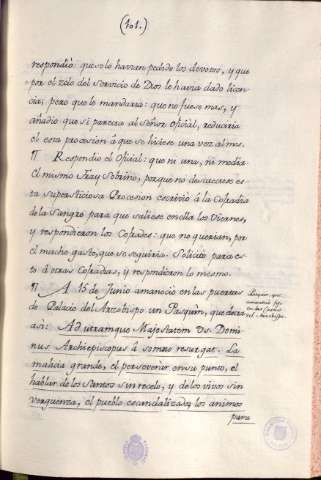 (101.)
respondiò: que se lo havian pedido los devotos, y que
por el zelo del servicio de Dios le havia dado licen
cia; pero que le mandaria: que no fuese mas, y
añadio que si parecia al Señor Oficial, reduciria
el esta procesion á que se hiciese una vez al mes.
¶ Respondio el Oficial: que ni una, ni media.
El mismo Fray Sobrino, porque no descaeciese es
ta supersticiosa Procesion escrivió á la Cofradia
de la Sangre para que saliese con ella los Viernes,
y respondieron los Cofrades: que no querian, por
el mucho gasto, que se seguiria. Solicitó para es
to á otras Cofradias, y respondieron lo mismo.
¶ A 15 de Junio amanecio en las puertas
de Palacio del Arzobispo un Pasquin, que decia
asi: Ad utramque Majestatem Ds. Domi
nus Archiepiscopus á somno resurgat. La
malicia grande, el perseverar en su punto, el
hablar de los Santos sin recelo, y de los vivos sin
verguenza, el pueblo escandalizado, los animos
para
Pasquin, que